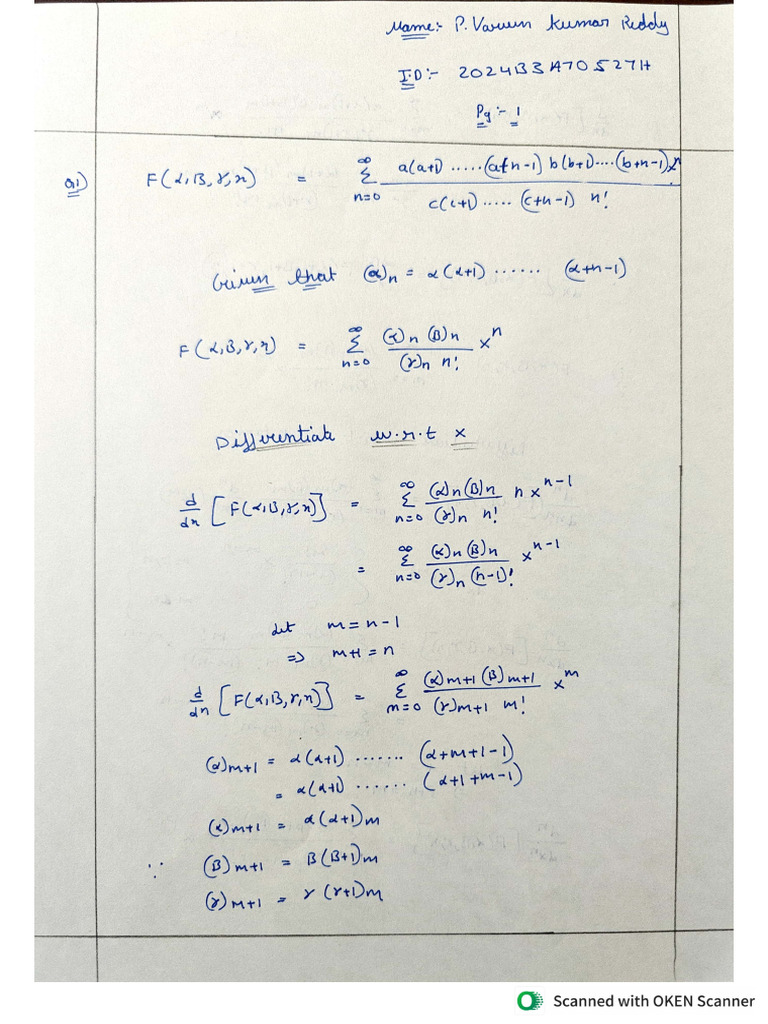 Name:- P. Varun Kumar Reddy
I.D:- 2024B3A70527H
Pg:- 1
Q1) F(α,β,γ,x) = ∞Σn=0 a(a+1).....(a+n-1) b(b+1)....(b+n-1)x^n / c(c+1).....(c+n-1) n!
Given that (α)n = α(α+1)...... (α+n-1)
F(α,β,γ,x) = ∞Σn=0 (α)n (β)n / (γ)n n! x^n
Differentiate w.r.t x
d/dx [F(α,β,γ,x)] = ∞Σn=0 (α)n(β)n / (γ)n n! n x^n-1
= ∞Σn=0 (α)n(β)n / (γ)n (n-1)! x^n-1
Let m = n-1
=> m+1 = n
d/dx [F(α,β,γ,x)] = ∞Σm=0 (α)m+1 (β)m+1 / (γ)m+1 m! x^m
(α)m+1 = α(α+1) ....... (α+m+1-1)
= α(α+1) ...... (α+1+m-1)
(α)m+1 = α(α+1)m
∵ (β)m+1 = β(β+1)m
(γ)m+1 = γ(γ+1)m
Scanned with OKEN Scanner